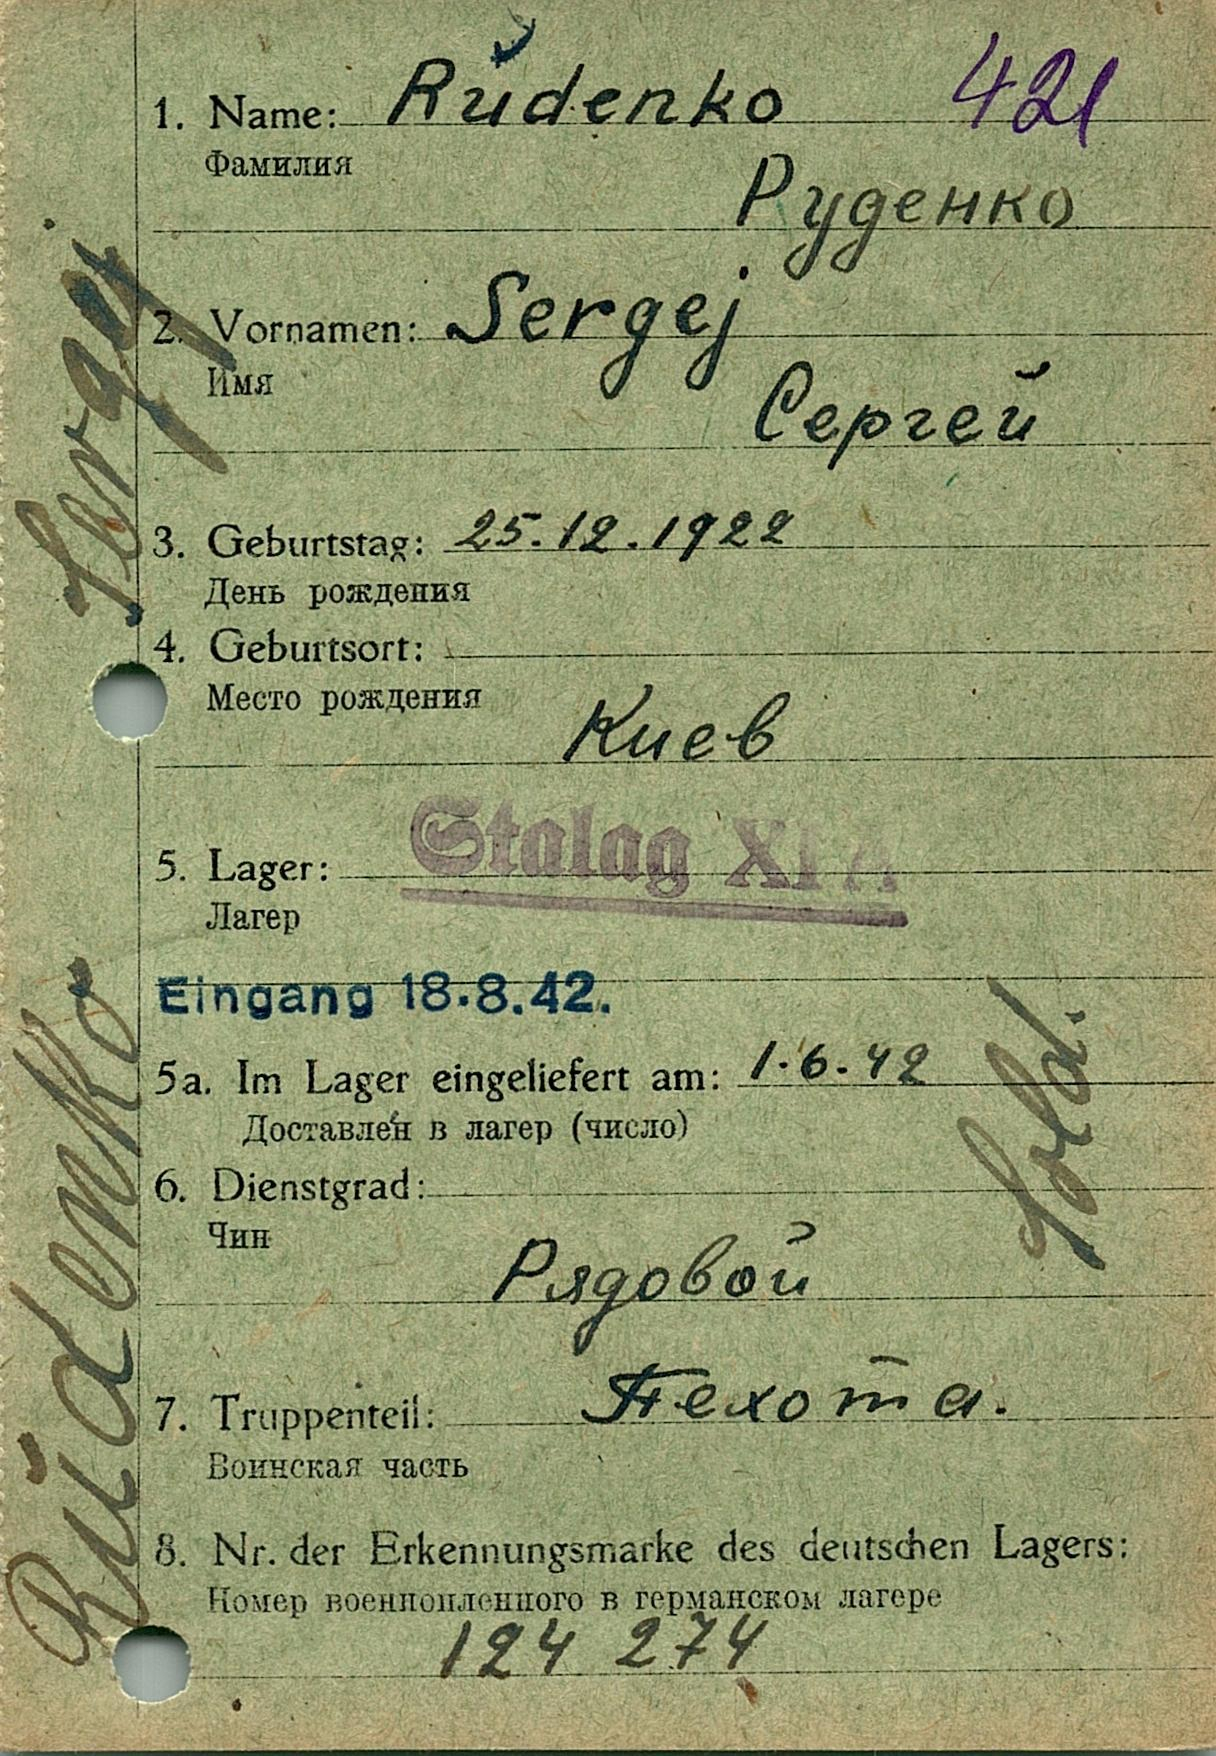 1. Name: Rŭdenko 421
Фамилия
Руденко
2. Vornamen: Sergej
Имя
Сергей
3. Geburtstag: 25.12.1922
День рождения
4. Geburtsort:
Место рождения
Киев
5. Lager: Stalag XI A
Лагерь
Eingang 18.8.42.
5a. Im Lager eingeliefert am: 1.6.42
Доставлен в лагер (число)
6. Dienstgrad:
Чин
Рядовой
7. Truppenteil: Пехота.
Воинская часть
8. Nr. der Erkennungsmarke des deutschen Lagers:
Номер военнопленного в германском лагере
124 274
Rŭdenko Sergej
Sold.